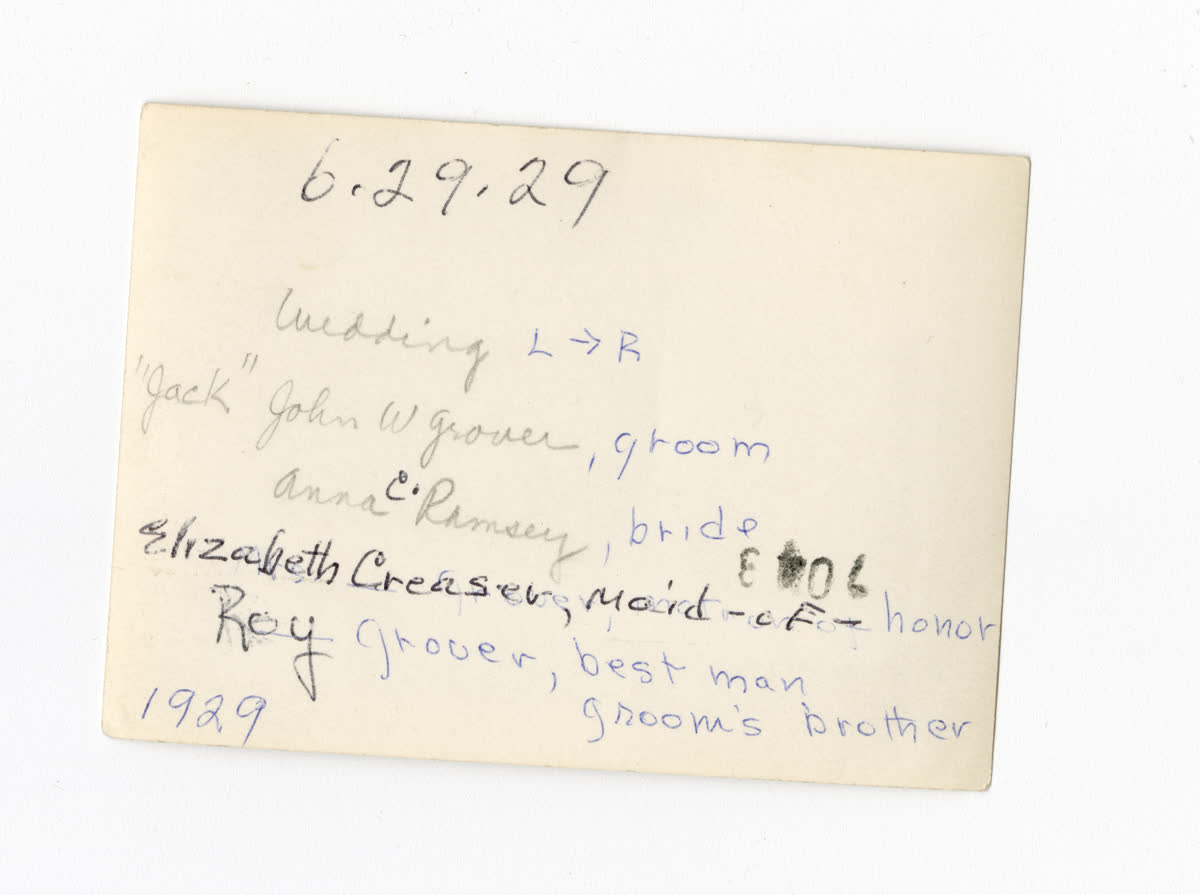 6.29.29
Wedding L → R
"Jack" John W Grover, groom
Anna C. Ramsey, bride
Elizabeth Creaser, Maid-of-honor
Roy Grover, best man
groom's brother
1929